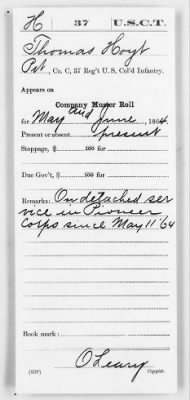 H 37 U.S.C.T.
Thomas Hoyt
Pvt., Co. C, 37 Reg't U. S. Col'd Infantry.
Appears on
Company Muster Roll
for May and June, 1864.
Present or absent present
Stoppage, $ 100 for
Due Gov't, $ 100 for
Remarks: On detached ser
vice in Pioneer
Corps since May 11 '64
Book mark:
O'Leary
(358) Copyist.